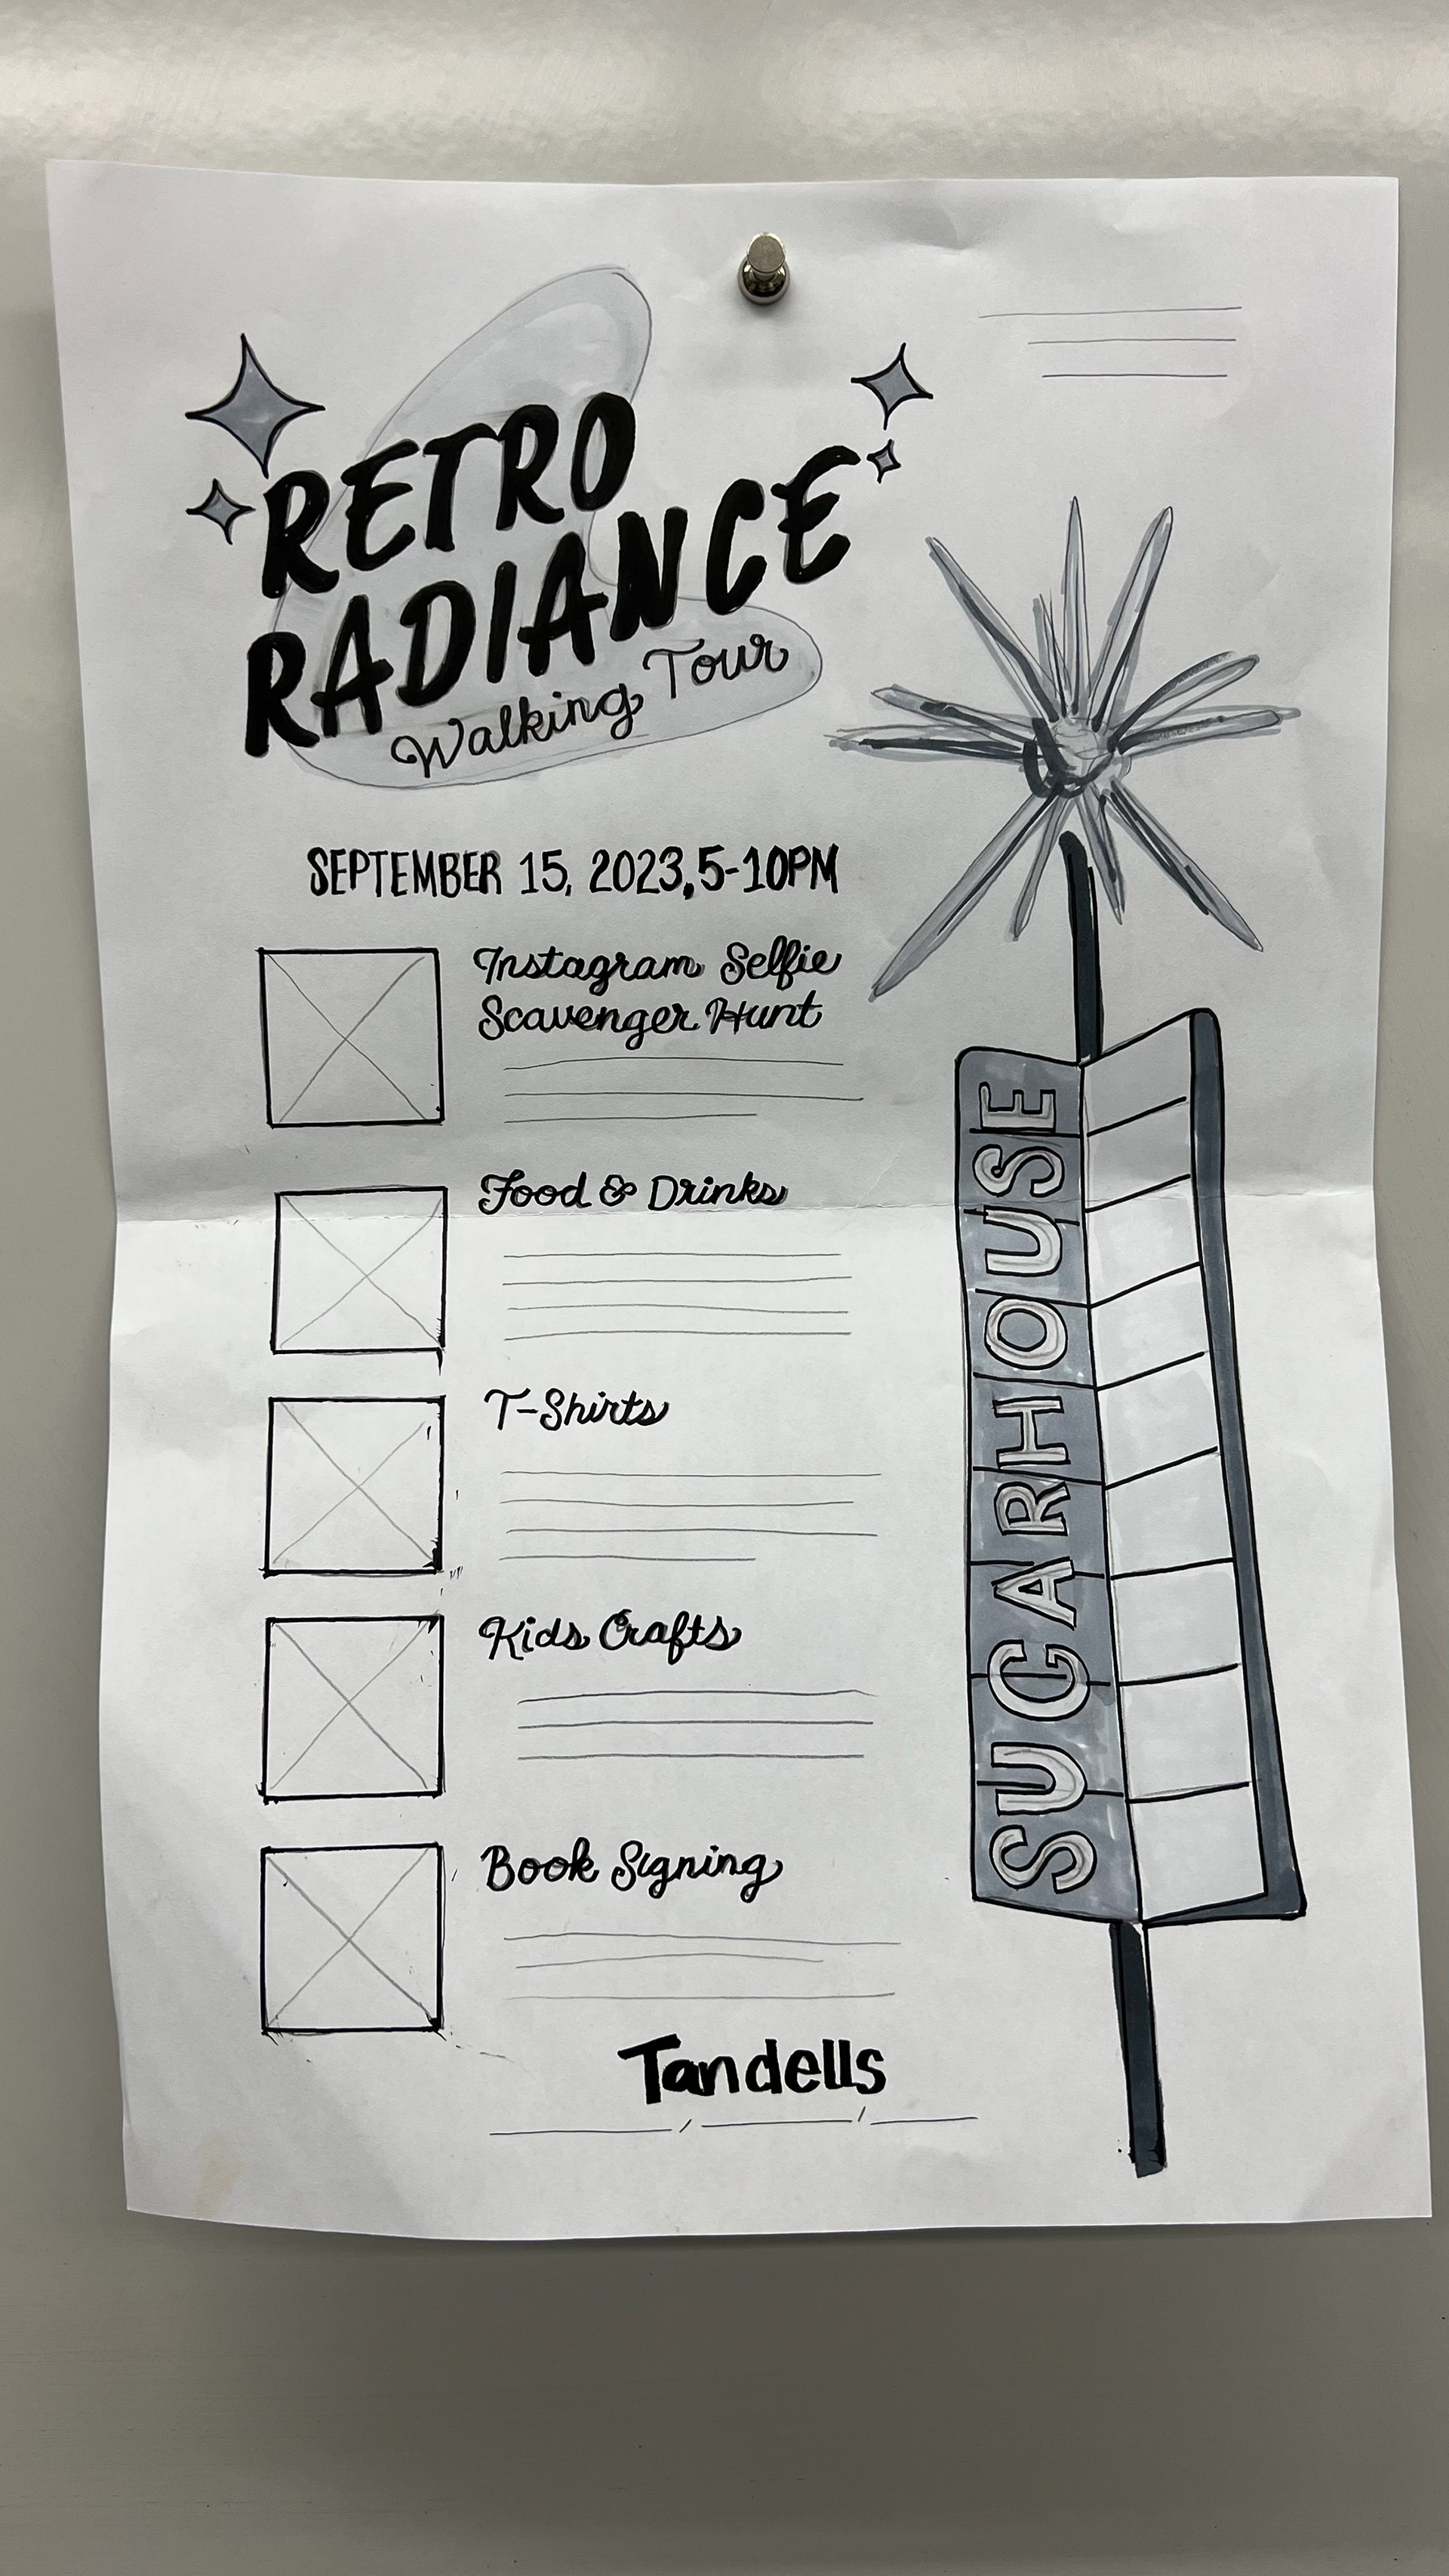 RETRO
RADIANCE
Walking Tour
SEPTEMBER 15, 2023, 5-10PM
Instagram Selfie
Scavenger Hunt
Food & Drinks
T-Shirts
Kids Crafts
Book Signing
Tandells
SUGARHOUSE